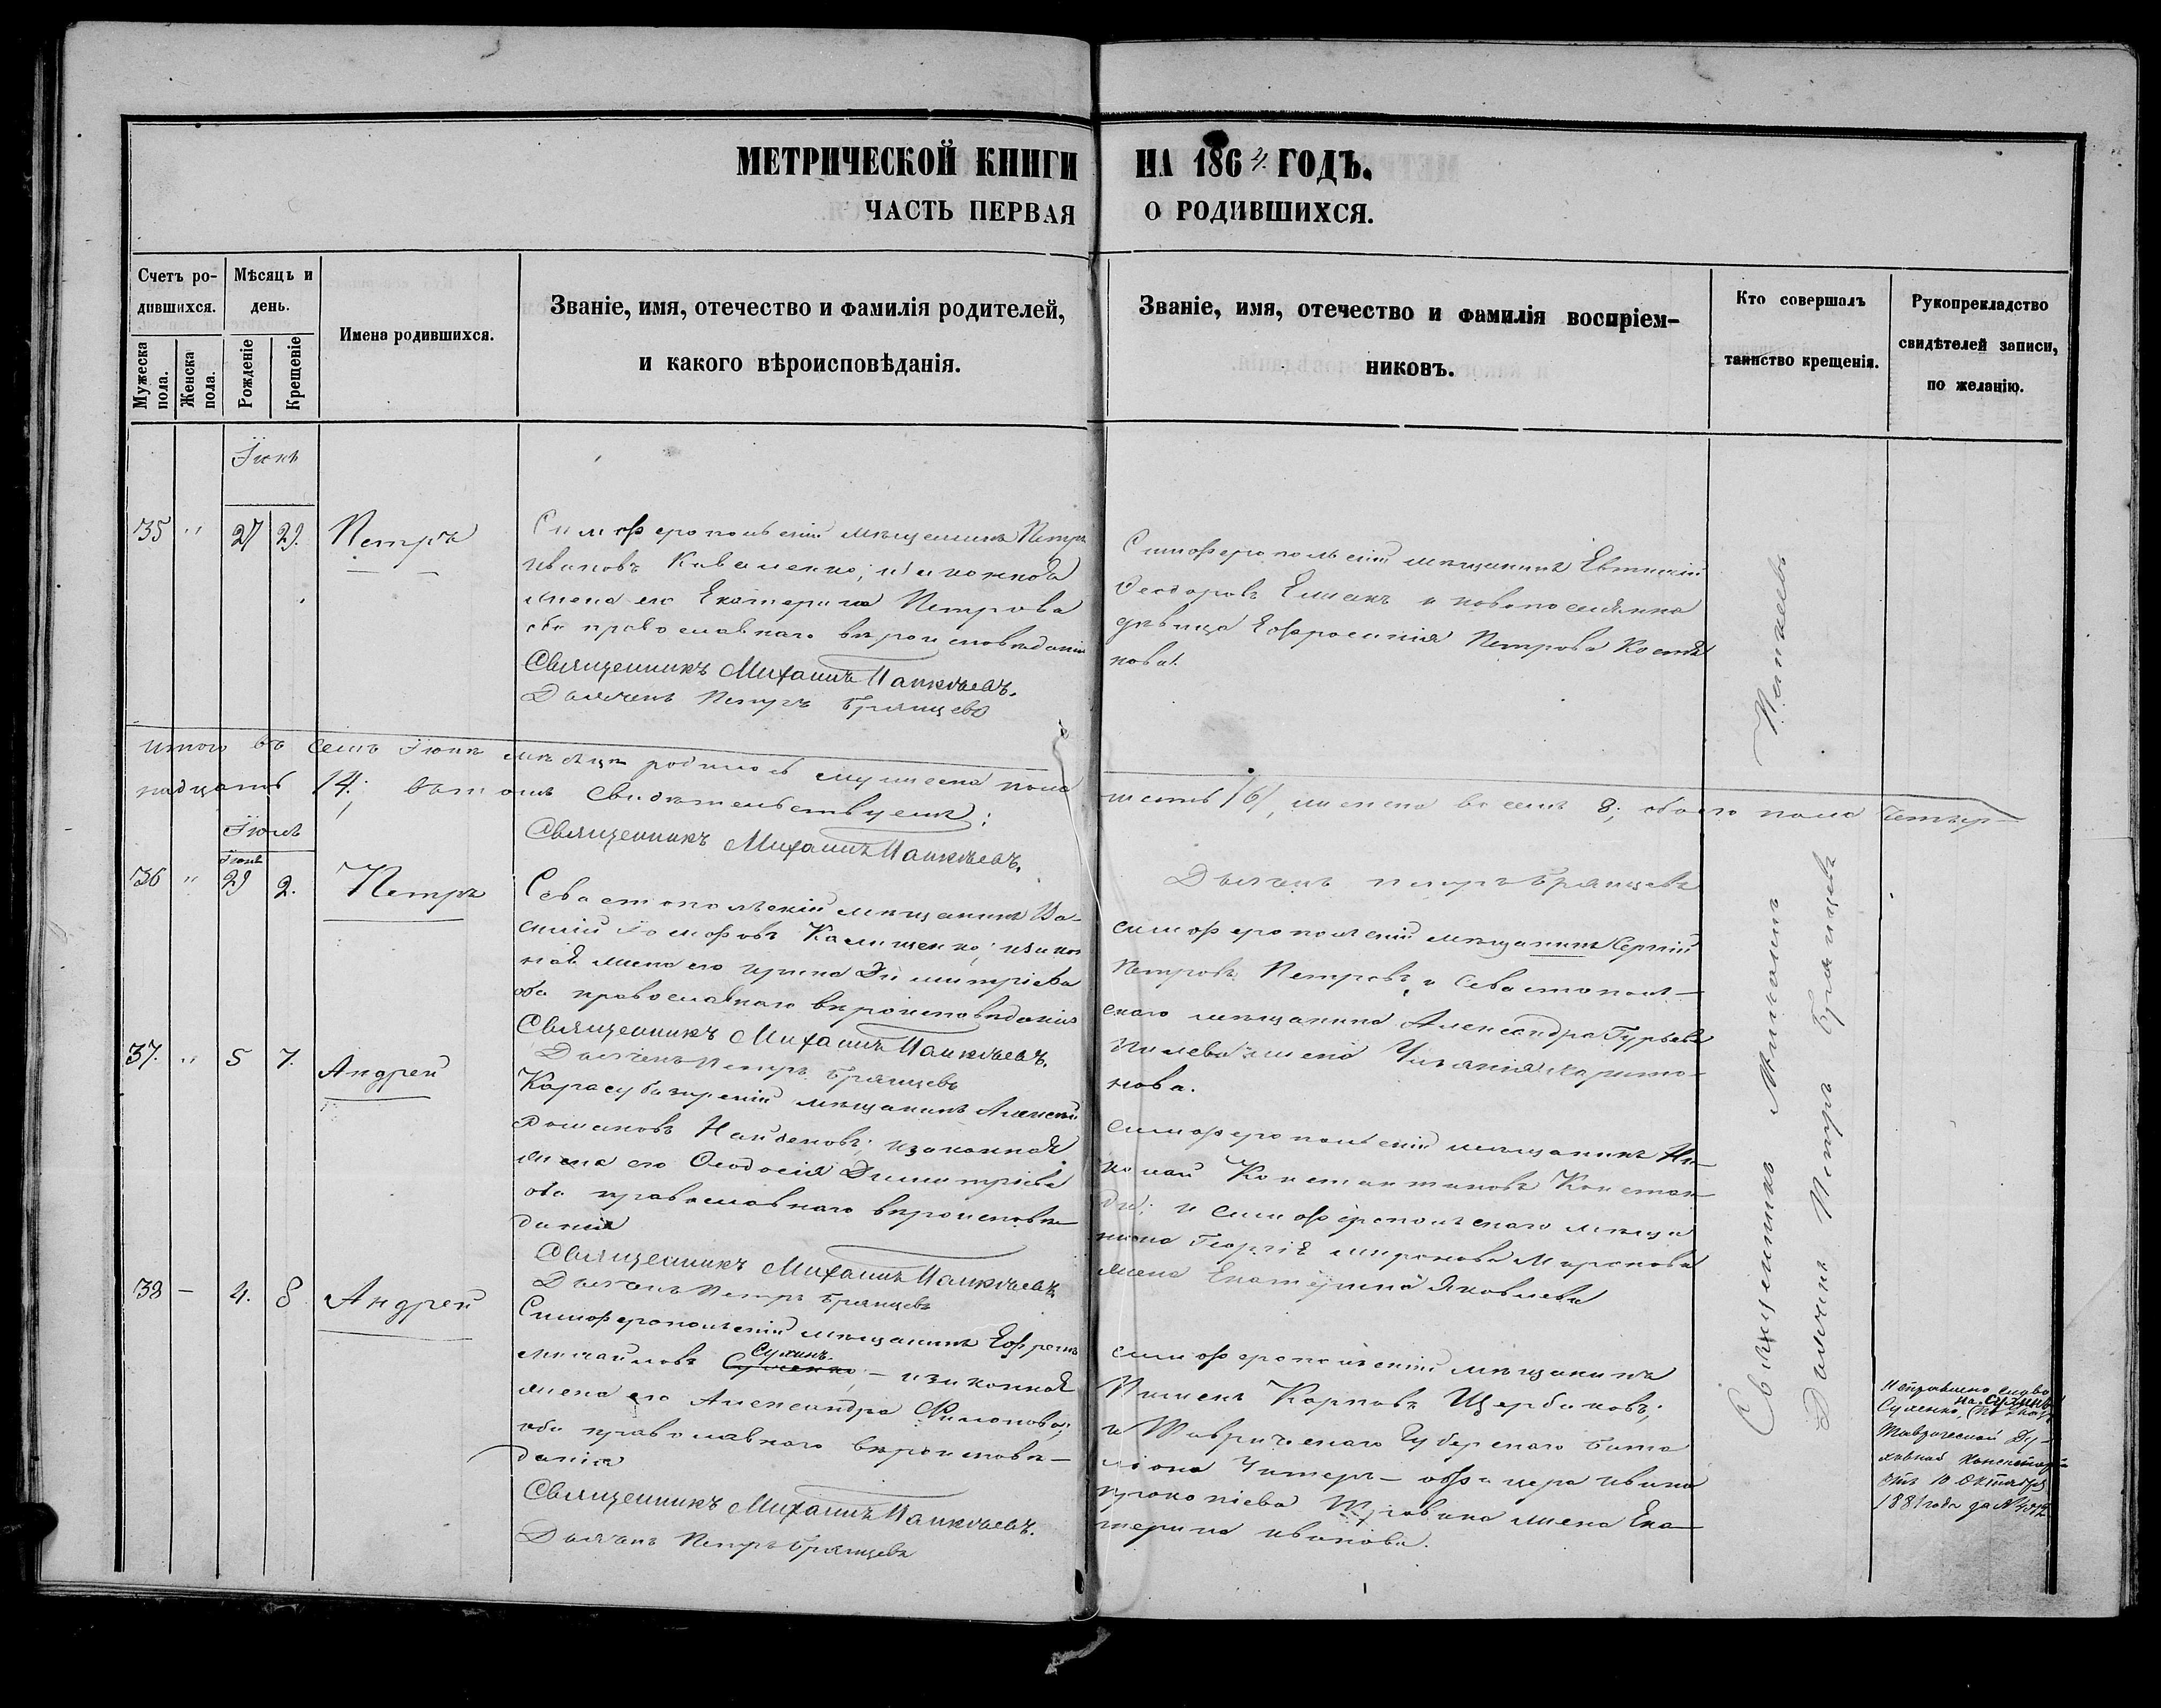 МЕТРИЧЕСКОЙ КНИГИ НА 1864. ГОДЪ.
ЧАСТЬ ПЕРВАЯ О РОДИВШИХСЯ.
Счетъ родившихся.
Мужеска пола.
Женска пола.
Мѣсяцъ и день.
Рожденіе
Крещеніе
Имена родившихся.
Званіе, имя, отечество и фамилія родителей,
и какого вѣроисповѣданія.
Званіе, имя, отечество и фамилія воспріем-
никовъ.
Кто совершалъ
таинство крещенія.
Рукоприкладство
свидѣтелей записи,
по желанію.
35 " 27 29. Петръ
Симферопольскій мѣщанинъ Петръ
Ивановъ Коваленко; и законная
жена его Екатерина Петрова
оба православнаго вѣроисповѣданія
Священникъ Михаилъ
Дьячекъ Петръ Брянцевъ
Симферопольскій мѣщанинъ Евтихій
Феодоровъ и новопоселянка
дѣвица Ефросинія Петрова
нова.
итого въ семъ Іюнѣ мѣсяцѣ родилось мужеска пола
шесть /6/, женска восемь 8; обоего пола четыр-
надцать 14; въ томъ свидѣтельствуемъ:
Священникъ Михаилъ
Дьячекъ Петръ Брянцевъ
Іюль
Іюнь
36 " 29 2. Петръ
Севастопольскій мѣщанинъ Ва-
силій Калищенко; и закон
ная жена его Ирина Димитріева
оба православнаго вѣроисповѣданія
Священникъ Михаилъ
Дьячекъ Петръ Брянцевъ
Симферопольскій мѣщанинъ Сергій
Петровъ Петровъ, и Севастополь-
скаго мѣщанина Александра Гурьева
жена
нова.
37. " 5 7. Андрей
Карасубазарскій мѣщанинъ Алексѣй
Романовъ Найденовъ; и законная
жена его Феодосія Димитріева
оба православнаго вѣроисповѣ-
данія
Священникъ Михаилъ
Дьячекъ Петръ Брянцевъ
Симферопольскій мѣщанинъ Ни-
колай Константиновъ Констан-
ди; и Симферопольскаго мѣща
нина Георгія Миронова Миронова
жена Екатерина Яковлева
38 - 4. 8 Андрей
Симферопольскій мѣщанинъ Ефремъ
Михайловъ Сухинъ. Сухенко, - и законная
жена его Александра Филонова;
оба православнаго вѣроисповѣ-
данія
Священникъ Михаилъ
Дьячекъ Петръ Брянцевъ
Симферопольскій мѣщанинъ
Пименъ Карповъ Щербаковъ;
и Таврическаго Губернскаго бата
ліона Унтеръ-офицера Ивана
Прокопіева жена Ека-
терина Иванова.
Священникъ Михаилъ
Дьячекъ Петръ Брянцевъ
Исправлено слово
Сухенко на Сухинъ
Таврической Ду-
ховной Консисторіи
отъ 10 Октября
1881 года за №